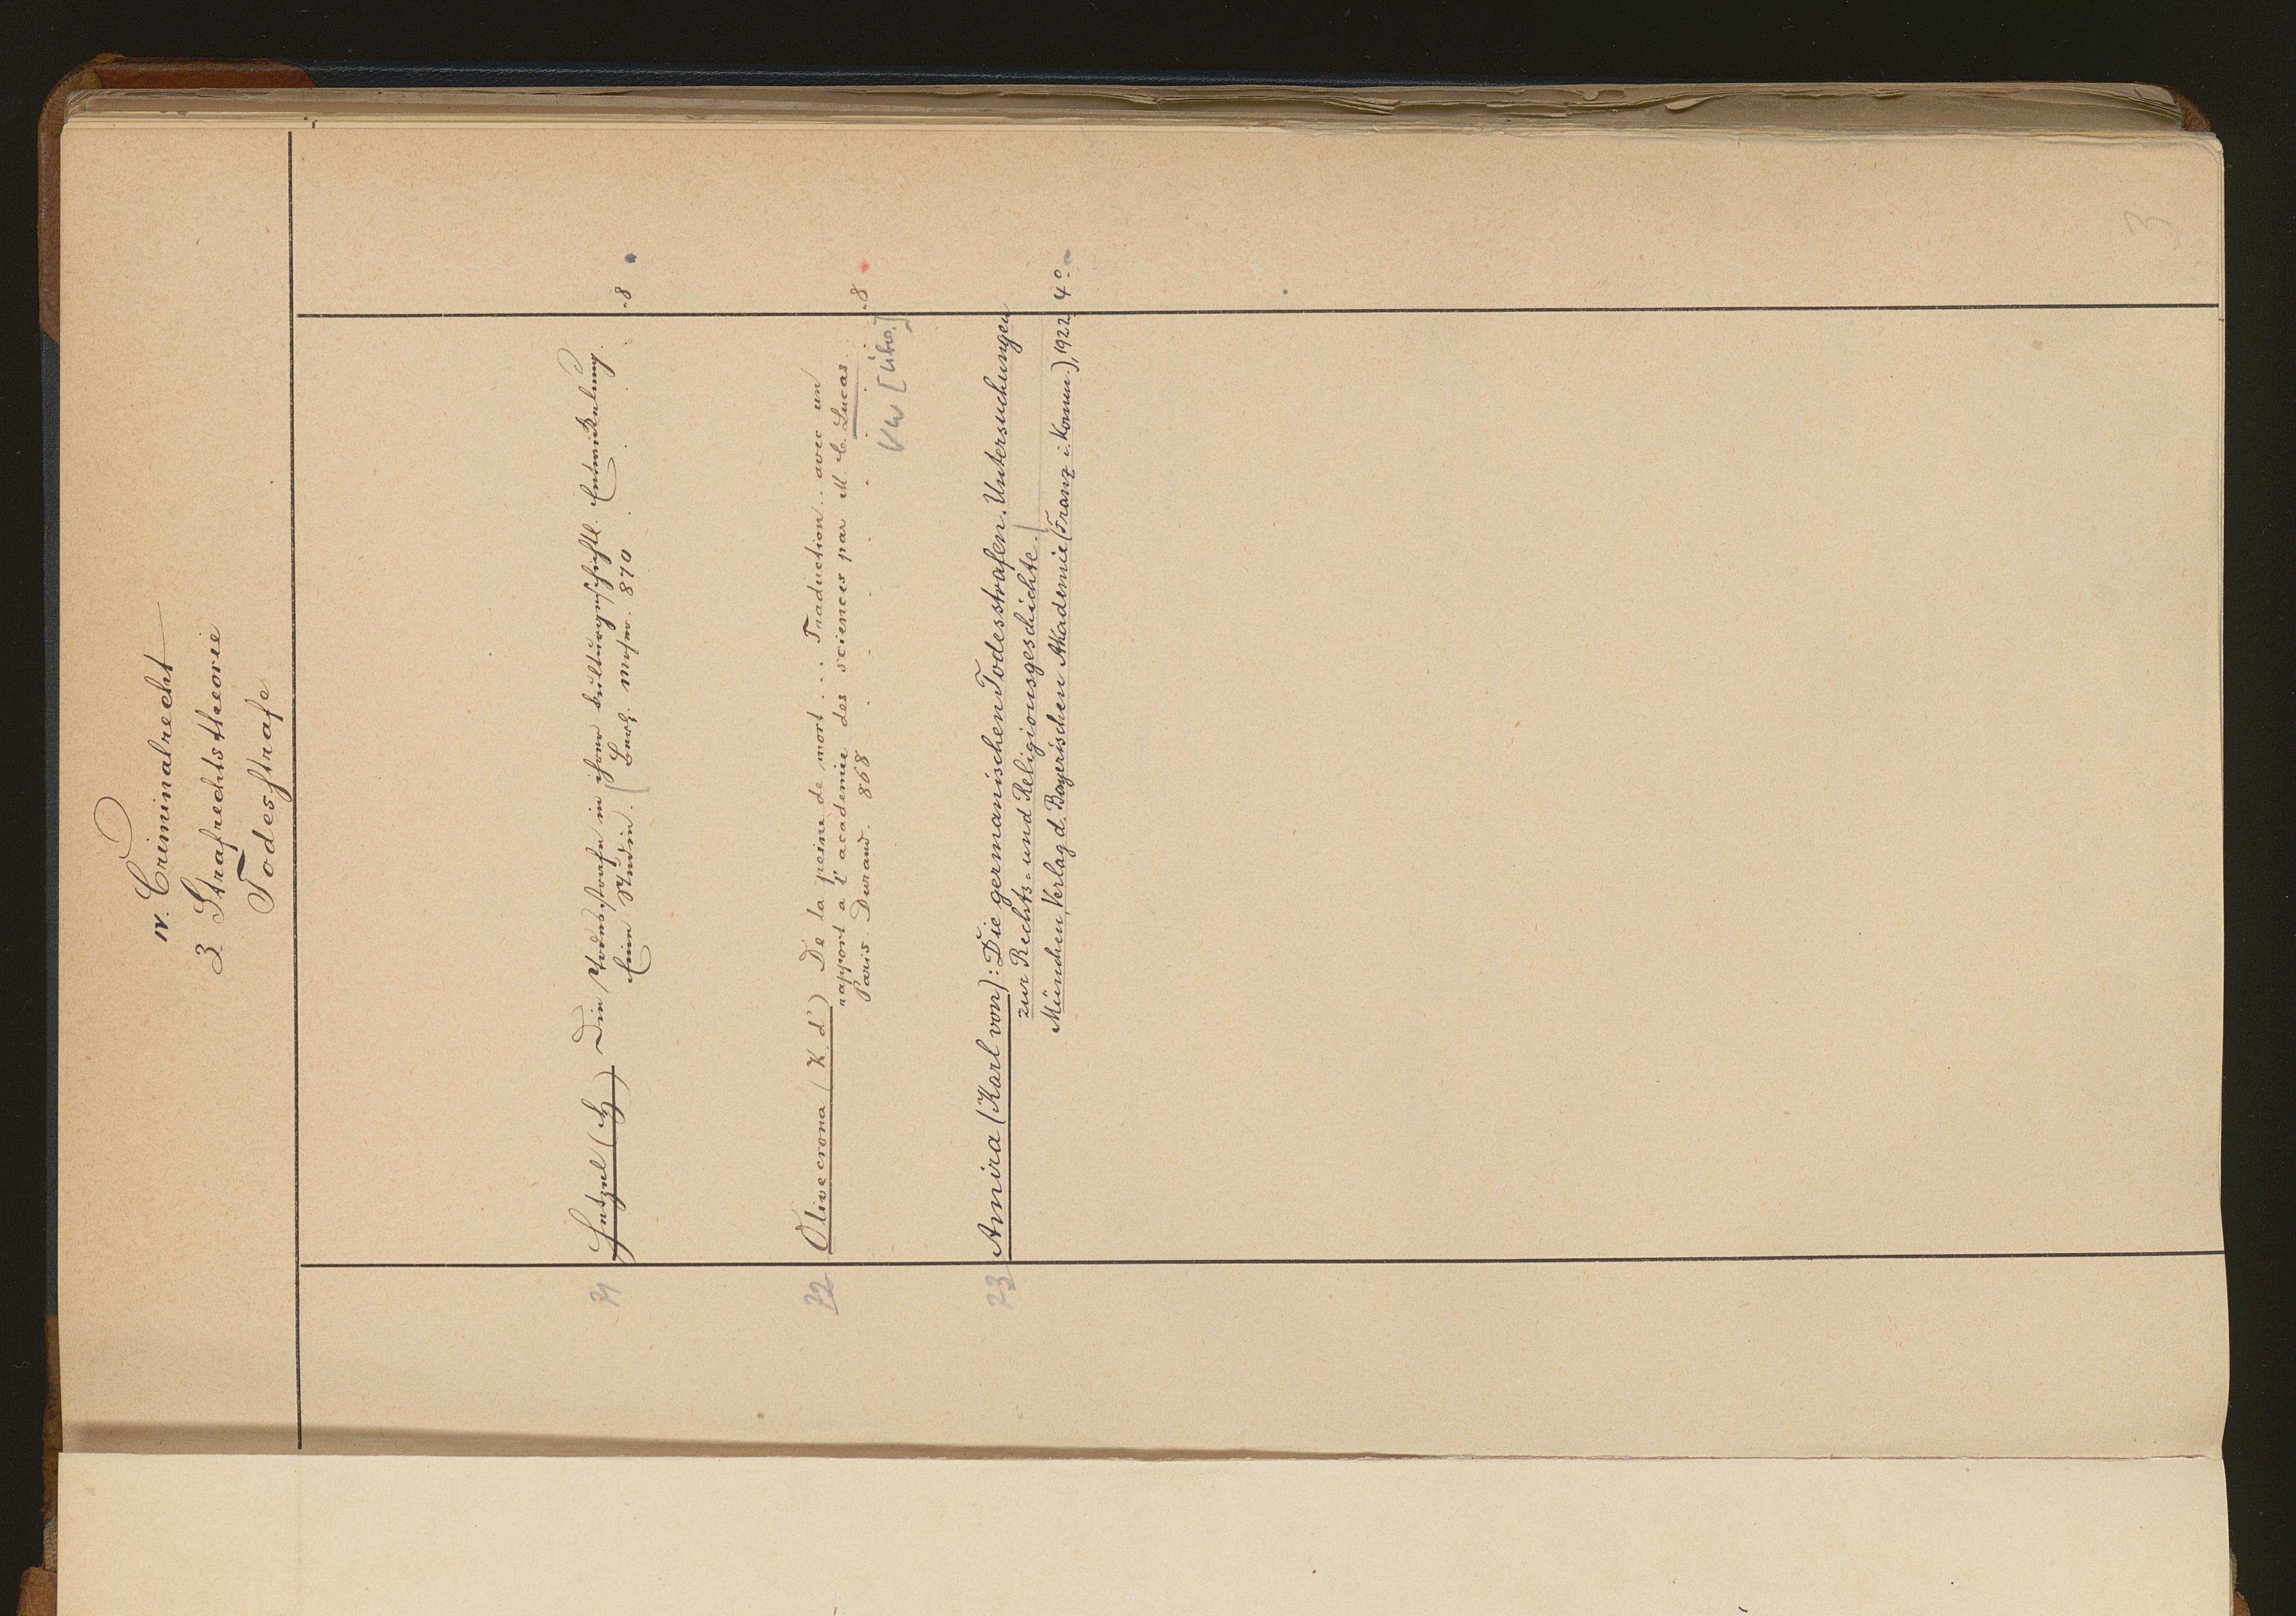 IV. Criminalrecht
3 Strafrechtstheorie
Todesstrafe
71 Hetzel (H) Die Todesstrafe in ihrer kulturgeschichtl. Entwickelung.
Eine Studie. Berl. Moser. 870 8
72 Olivecrona (K. d') De la peine de mort . . . Traduction .. avec un
rapport a l'academie des sciences par M. C. Lucas.
Paris. Durand. 868 8
VW [Übers.]
73 Amira (Karl von): Die germanischen Todesstrafen. Untersuchungen
zur Rechts- und Religionsgeschichte.
München, Verlag d. Bayerischen Akademie (Franz i. Komm.), 1922 4°
3